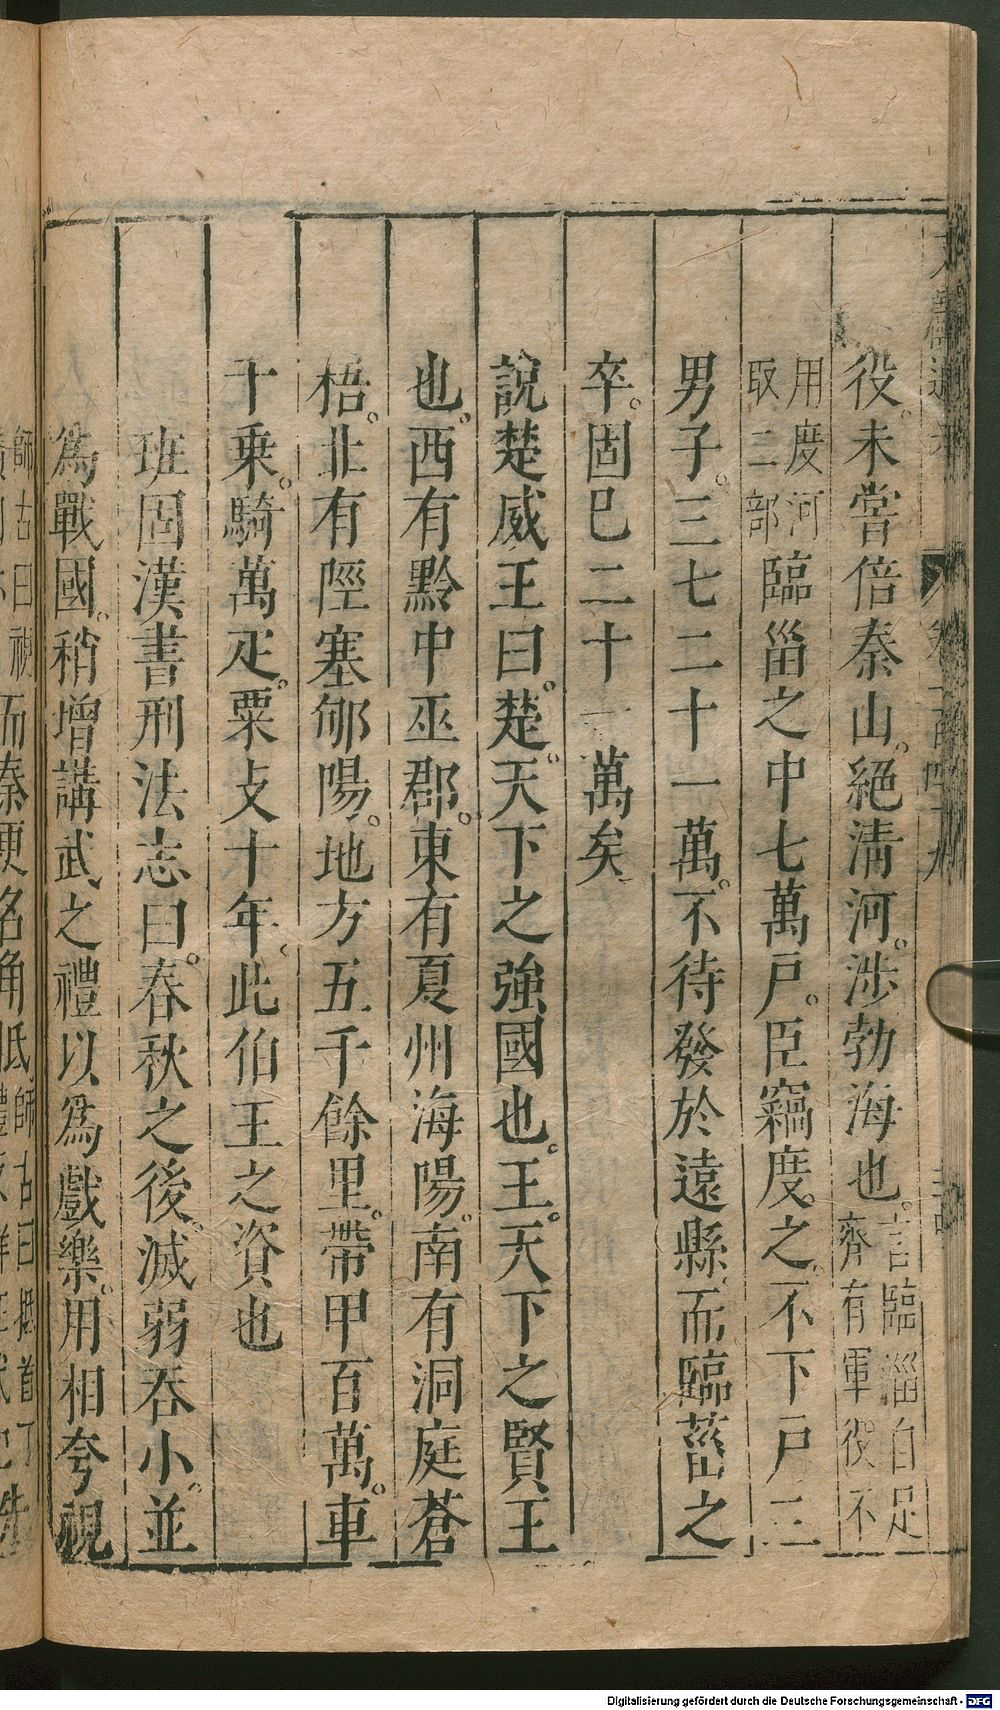 役未嘗倍泰山絕清河涉勃海也言臨淄自足
齊有軍役不
用度河
取二部臨甾之中七萬戸臣竊度之不下戸三
男子三七二十一萬不待發於遠縣而臨菑之
卒固巳二十一萬矣
說楚威王曰楚天下之強國也王天下之賢王
也西有黔中巫郡東有夏州海陽南有洞庭蒼
梧北有陘塞郇陽地方五千餘里帶甲百萬車
十乗騎萬疋粟支十年此伯王之資也
班固漢書刑法志曰春秋之後滅弱吞小並
為戰國稍增講武之禮以為戲樂用相夸視
師古曰視
而秦更名角抵師古曰抵
Digitalisierung gefördert durch die Deutsche Forschungsgemeinschaft - DFG